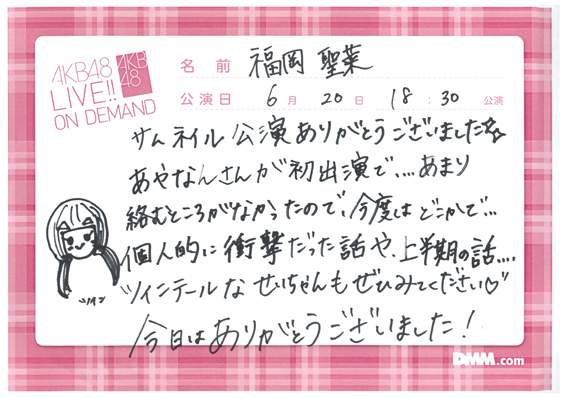 AKB48
LIVE!!
ON DEMAND
AKB
48
名前 福岡 聖菜
公演日 6月 20日 18:30 公演
サムネイル公演ありがとうございました☆
あやなんさんが初出演で、…あまり
絡むところがなかったので、今度はどこかで…
個人的に衝撃だった話や、上半期の話…
ツインテールなせいちゃんもぜひみてください♡
今日はありがとうございました!
DMM.com